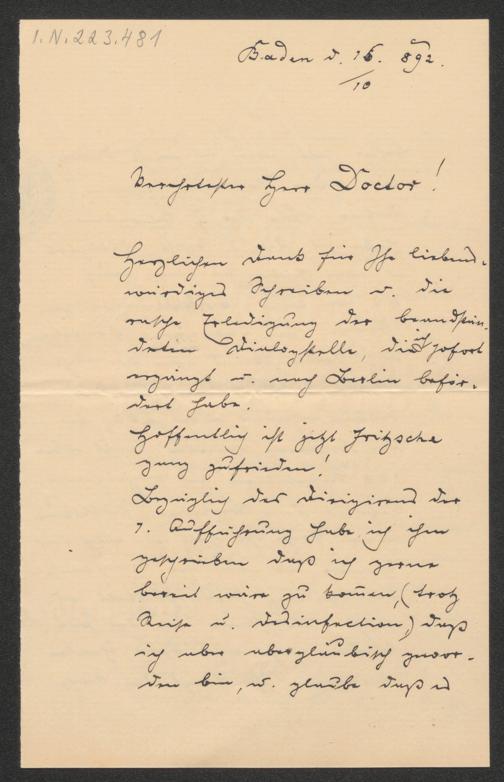 I.N. 223.481
Baden d. 15. 892.
/10
Verehrtester Herr Doctor!
Herzlichen Dank für Ihr liebens-
würdiges Schreiben u. die
rasche Erledigung der beanstän-
deten Dialogstelle, die ich sofort
ergänzt u. nach Berlin beför-
dert habe.
Hoffentlich ist jetzt Fritzsche
ganz zufrieden!
Bezüglich des Dirigirens der
1. Aufführung habe ich ihm
geschrieben daß ich gerne
bereit wäre zu kom̄en, (trotz
Reise u. Desinfection) daß
ich aber abergläubisch gewor-
den bin, u. glaube daß es